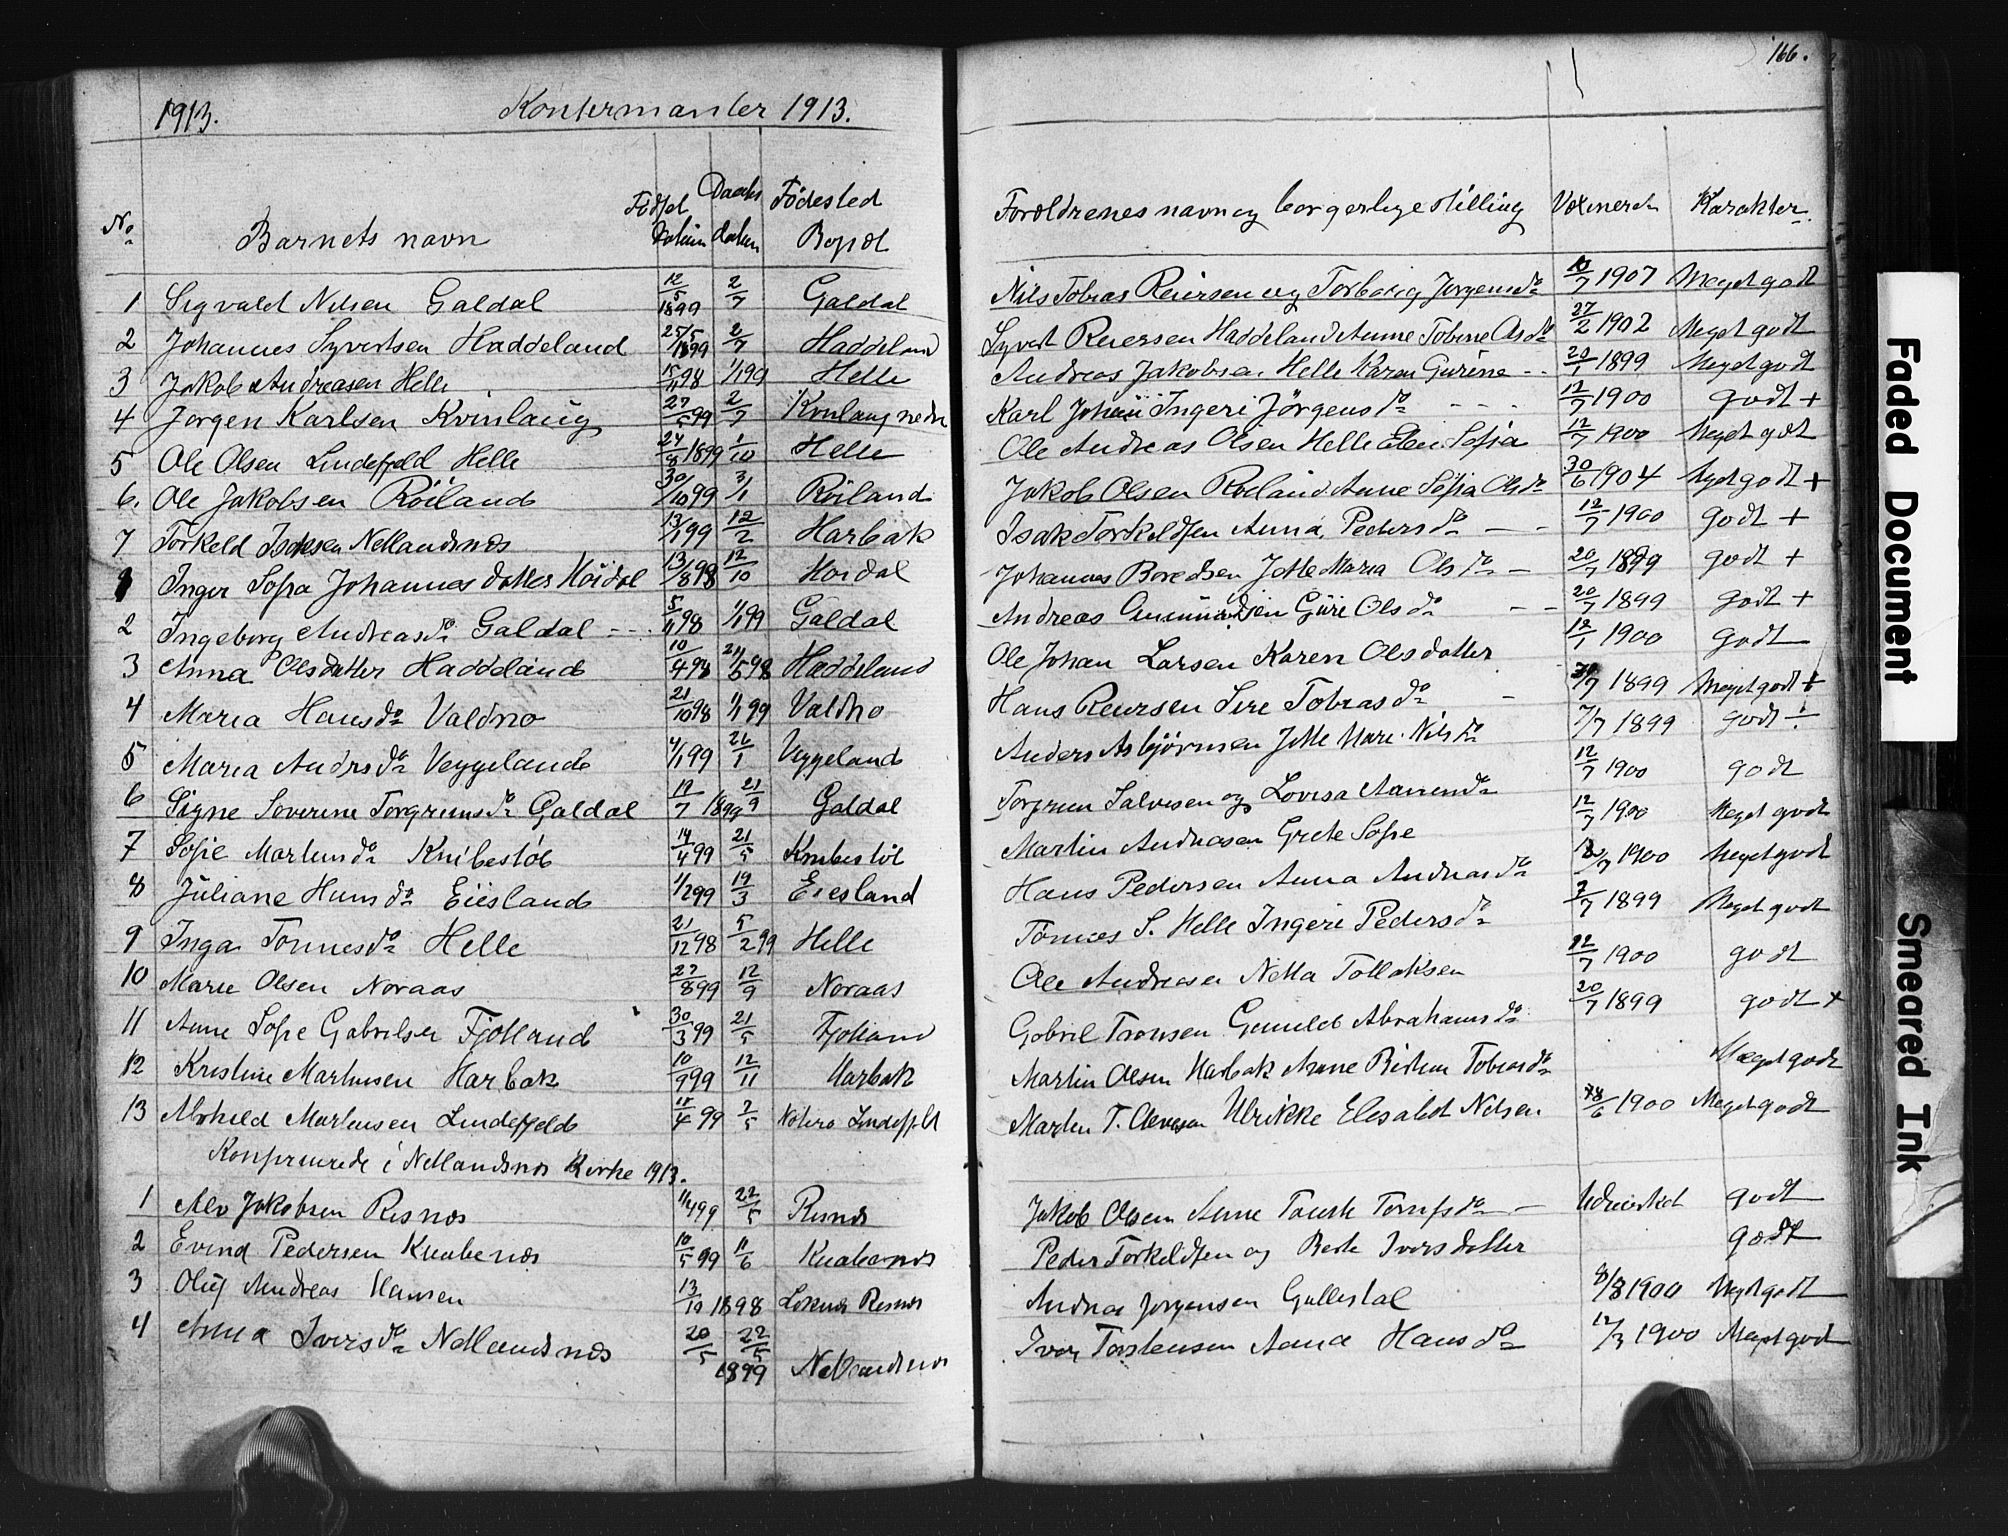 166.
1913. Konfirmanter 1913.
No Barnets navn Fødsel datum Daabs datum Fødested Bopæl Forældrenes navn og borgerlige stilling Vaxinerede Karakter.
1 Sigvald Nilsen Galdal 12/5 1899 2/7 Galdal Nils Tobias Reiersen og Torborg Jørgensdr 10/7 1907 Meget godt
2 Johannes Syvertsen Haddeland 25/5 1899 2/7 Haddeland Syvert Reiersen Haddeland Anne Tobine Olsdr 27/2 1902 Meget godt
3 Jakob Andreasen Helle 15/11 98 1/1 99 Helle Andreas Jakobsen Helle Karen Gurine - - 20/1 1899 Meget godt
4 Jørgen Karlsen Kvinlaug 27/5 99 2/7 Kvinlaug nedre Karl Johan Ingeri Jørgensdr - - - 12/7 1900 godt +
5 Ole Olsen Lindefjeld Helle 24/8 1899 1/10 Helle Ole Andreas Olsen Helle Elen Sofia 12/7 1900 Meget godt
6. Ole Jakobsen Röiland 30/10 99 3/1 Röiland Jakob Olsen Röiland Anne Sofia Olsdr 30/6 1904 Meget godt +
7 Torkeld Isaksen Netlandsnes 13/1 99 12/2 Harbak Isak Torkeldsen Anna Pedersdr - - 12/7 1900 godt +
1 Inger Sofia Johannesdatter Höidal 13/8 98 12/10 Hoidal Johannes Boredsen Jette Maria Olsdr - 20/7 1899 godt +
2 Ingeborg Andreasdr Galdal - - 5/11 98 1/1 99 Galdal Andreas Gunuldsen Güre Olsdr - - 20/7 1899 godt +
3 Anna Olsdatter Haddeland 10/4 98 21/5 98 Haddeland Ole Johan Larsen Karen Olsdatter 12/1 1900 godt
4 Maria Hansdr Valdno 21/10 98 1/1 99 Valdno Hans Reiersen Sire Tobiasdr - 7/7 1899 Meget godt +
5 Maria Andrsdr Veggeland 4/1 99 26/1 Veggeland Anders Asbjørnsen Jette Mari Nilsdr 7/7 1899 godt ÷
6 Signe Severine Torgrimsdr Galdal 17/7 1899 21/9 Galdal Torgrim Salvesen og Lovisa Aanensdr 12/7 1900 godt
7 Sofie Martinsdr Knibestöl 14/4 99 21/5 Knibestöl Martin Andreasen Grete Sofie 12/7 1900 Meget godt
8 Juliane Hansdr Eiesland 1/2 99 19/3 Eiesland Hans Pedersen Anna Andreasdr 12/7 1900 Meget godt
9 Inga Tonnesdr Helle 21/12 98 5/2 99 Helle Tönnes S. Helle Ingeri Pedersdr 7/7 1899 Meget godt
10 Marie Olsen Noraas 27/8 99 12/9 Noraas Ole Andreasen Netta Tollaksen 12/7 1900 godt
11 Anne Sofie Gabrielsen Fjotland 30/3 99 21/5 Fjotland Gabriel Tronsen Gunuld Abrahamsdr 20/7 1899 godt +
12 Kristine Martinsen Harbak 10/9 99 12/11 Harbak Martin Olsen Harbak Anne Tobiasdr Meget godt
13 Martinsen Lindefjeld 18/4 99 7/5 Lindefjeld Martin T. Ulrikke Elisabet Nilsen 28/6 1900 Meget godt
Konfirmrede i Netlandsnes Kirke 1913.
1 Alv Jakobsen Risnes 11/4 99 22/5 Risnes Jakob Olsen Anne - Udvirket godt
2 Evind Pedersen Knabenes 10/5 99 11/6 Knabenes Peder Torkeldsen og Berte Iversdatter godt
3 Oluf Andreas Hansen 13/10 1898 Risnes Andrea Jørgensen Gullestal 8/8 1900 Meget godt
4 Anna Iversdr Netlandsnes 20/5 22/5 1899 Netlandsnes Iver Torstensen Anna Hansdr 12/7 1900 Meget godt
Faded Document
Smeared Ink